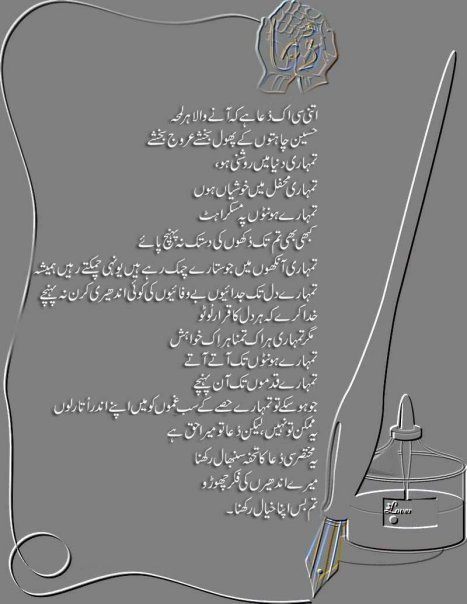 اتنی سی اک دُعا ہے کہ آنے والا ہر لمحہ
حسین چاہتوں کے پھول بخشے عروج بخشے
تمہاری دنیا میں روشنی ہو،
تمہاری محفل میں خوشیاں ہوں
تمہارے ہونٹوں پہ مسکراہٹ
کبھی بھی تم تک دُکھوں کی دستک نہ پہنچ پائے
تمہاری آنکھوں میں جو ستارے چمک رہے ہیں یونہی چمکتے رہیں ہمیشہ
تمہارے دل تک جدائیوں بے وفائیوں کی کوئی اندھیری کرن نہ پہنچے
خدا کرے کہ ہر دل کا قرار لُوٹو
مگر تمہاری ہر اک تمنا ہر اک خواہش
تمہارے ہونٹوں تک آتے آتے
تمہارے قدموں تک آن پہنچے
جو ہو سکے تو تمہارے حصے کے سب غموں کو میں اپنے اندر اُتار لوں
یہ ممکن تو نہیں، لیکن دُعا تو میرا حق ہے
یہ مختصر سی دُعا کا تحفہ سنبھال رکھنا
میرے اندھیرں کی فکر چھوڑو
تم بس اپنا خیال رکھنا۔
Lover